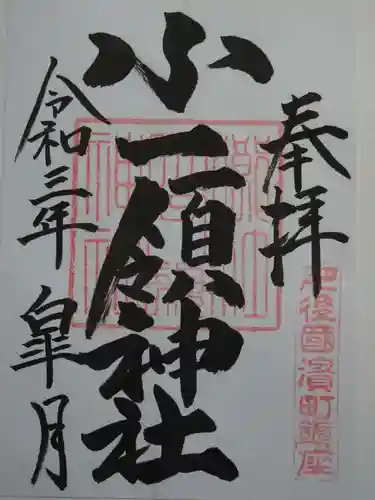 奉拝
肥後国濱町鎮座
小一領神社
令和三年
皐月